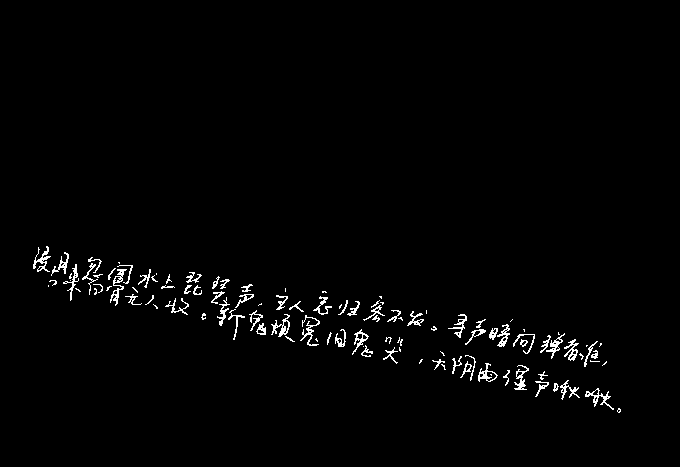 浸月，忽闻水上琵琶声，主人忘归客不发。寻声暗问弹者谁，
古来白骨无人收。新鬼烦冤旧鬼哭，天阴雨湿声啾啾。